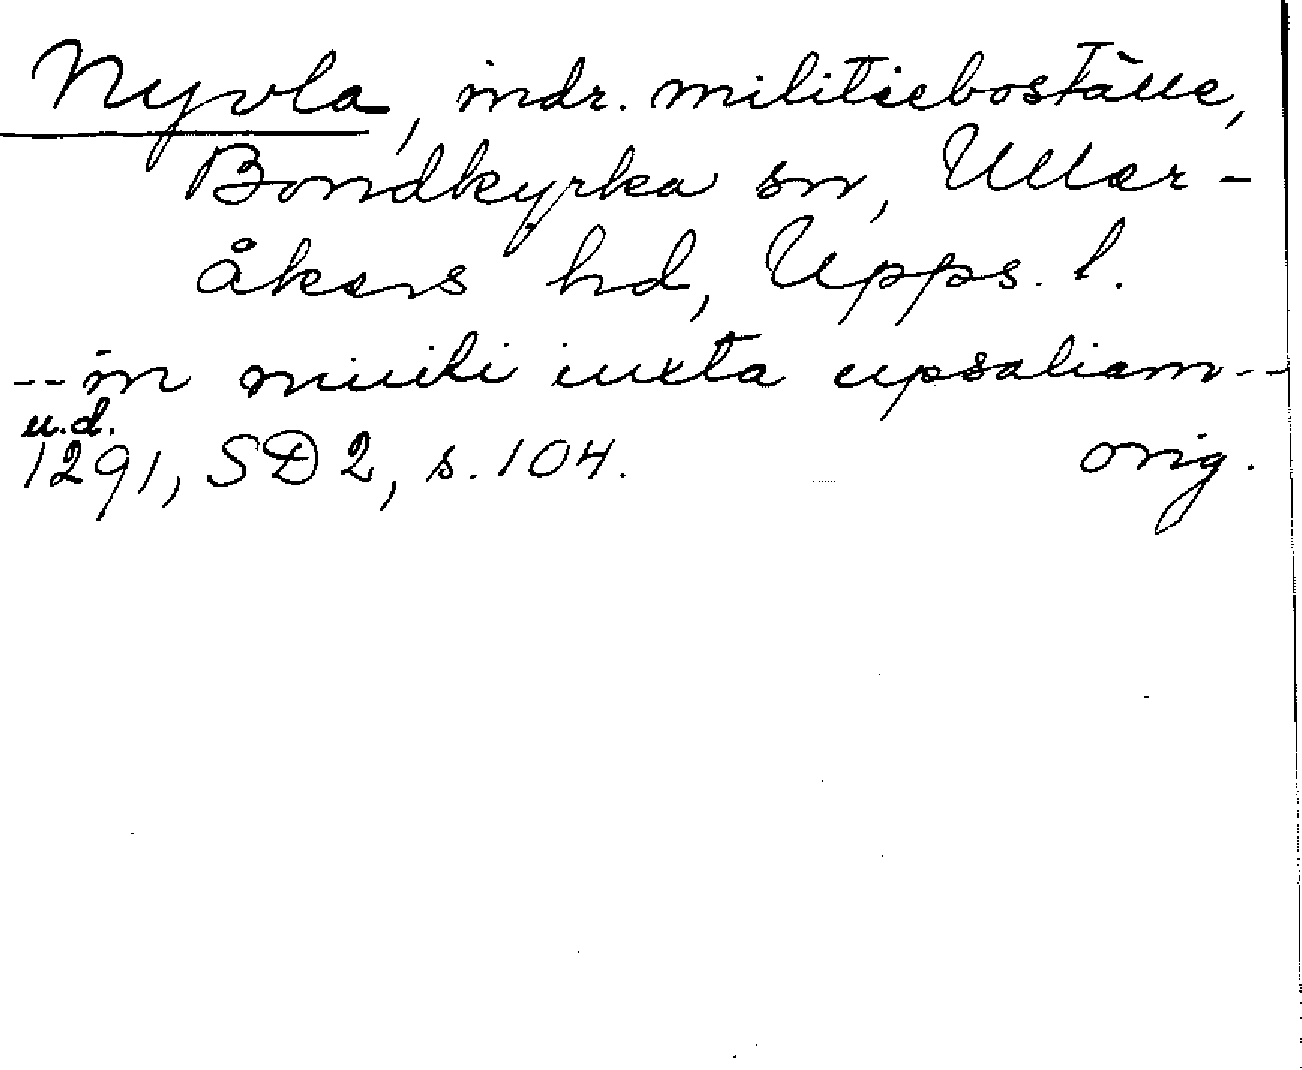 Nyvla, indr. militieboställe,
Bondkyrka sn, Uller-
åkers hd, Upps. l.
--in niuili iuxta upsaliam--
u.d.
1291, SD 2, s. 104. orig.